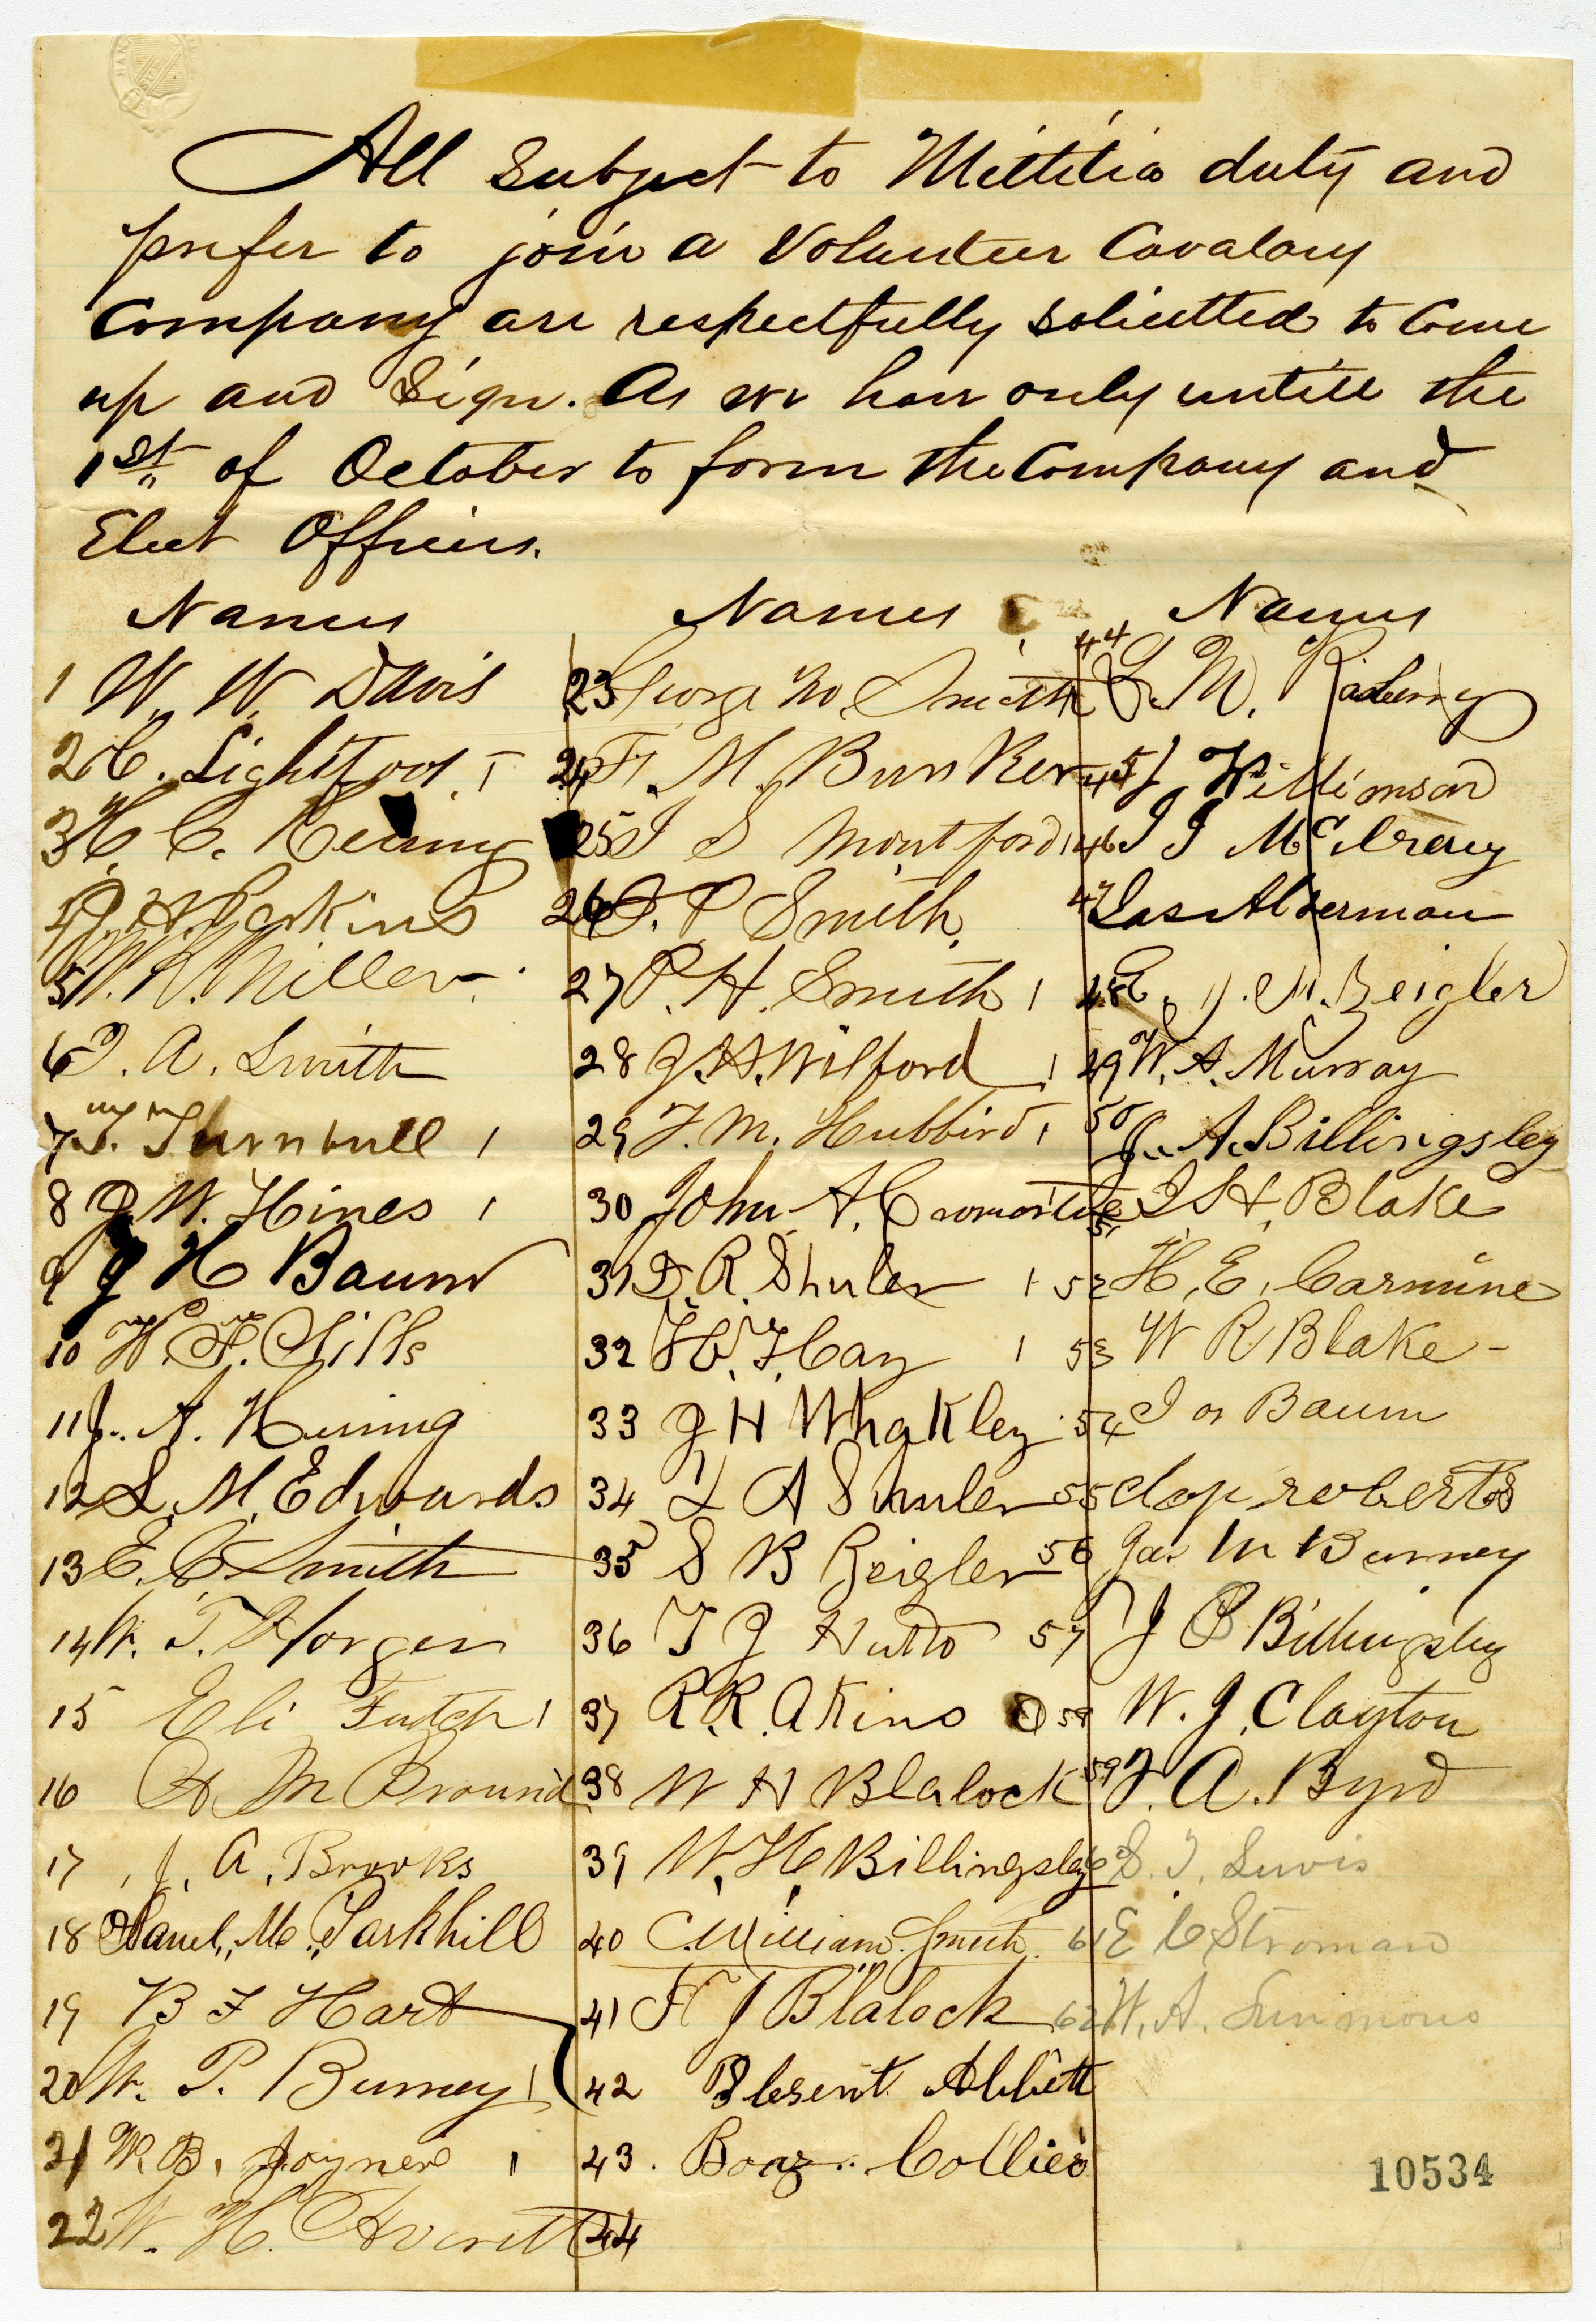 All Subject to Millitia duty and
prefer to join a Volunteer Cavalary
Company are respectfully solicitted to Come
up and Sign. As we have only untill the
1st of October to form the Company and
Elect Officers.
Names
1 W. W. Davis
2 C. Lightfoot
3 H. C.
4 J. H. Gaskins
5 W. R. Miller
6 T. A. Smith
7 T. Turnbull
8 J. W. Hines
9 J H Baum
10 W. F.
11 J. A.
12 L. M. Edwards
13 E. C. Smith
14 W. T.
15 Eli Futch
16 A M
17 J. A. Brooks
18 Saml. M. Parkhill
19 B F Hart
20 W. P. Burney
21 W. B. Joyner
22 W. H. Averett
Names
23 George W. Smith
24 F. M. Bunker
25 J S Montford
26 P Smith
27 P. H. Smith
28 J. H. Wilford
29 F. M. Hubbird
30 John A. Cromartie
31 D. R. Shuler
32 W. F. Hay
33 J H Whakley
34 L A Shuler
35 S B Zeigler
36 T J Hutto
37 R. R. Akins
38 W H Blalock
39 W. H. Billingsley
40 C. William Smith
41 J Blalock
42 Plesent Abbett
43. Boaz Collier
44
Names
44 L. M.
45 J. Williamson
46 J J McElravy
47 Jas Alderman
48 M. Zeigler
49 W. A. Murray
50 J. A. Billingsley
51 J S H. Blake
52 H. E. Carmine
53 W R Blake
54 J or Baum
55 dop roberts
56 Jas M Burney
57 J P Billingsley
58 W. J. Clayton
59 J. A. Byrd
60 S. J. Lewis
61 E C Stroman
62 W. A. Simmons
10534